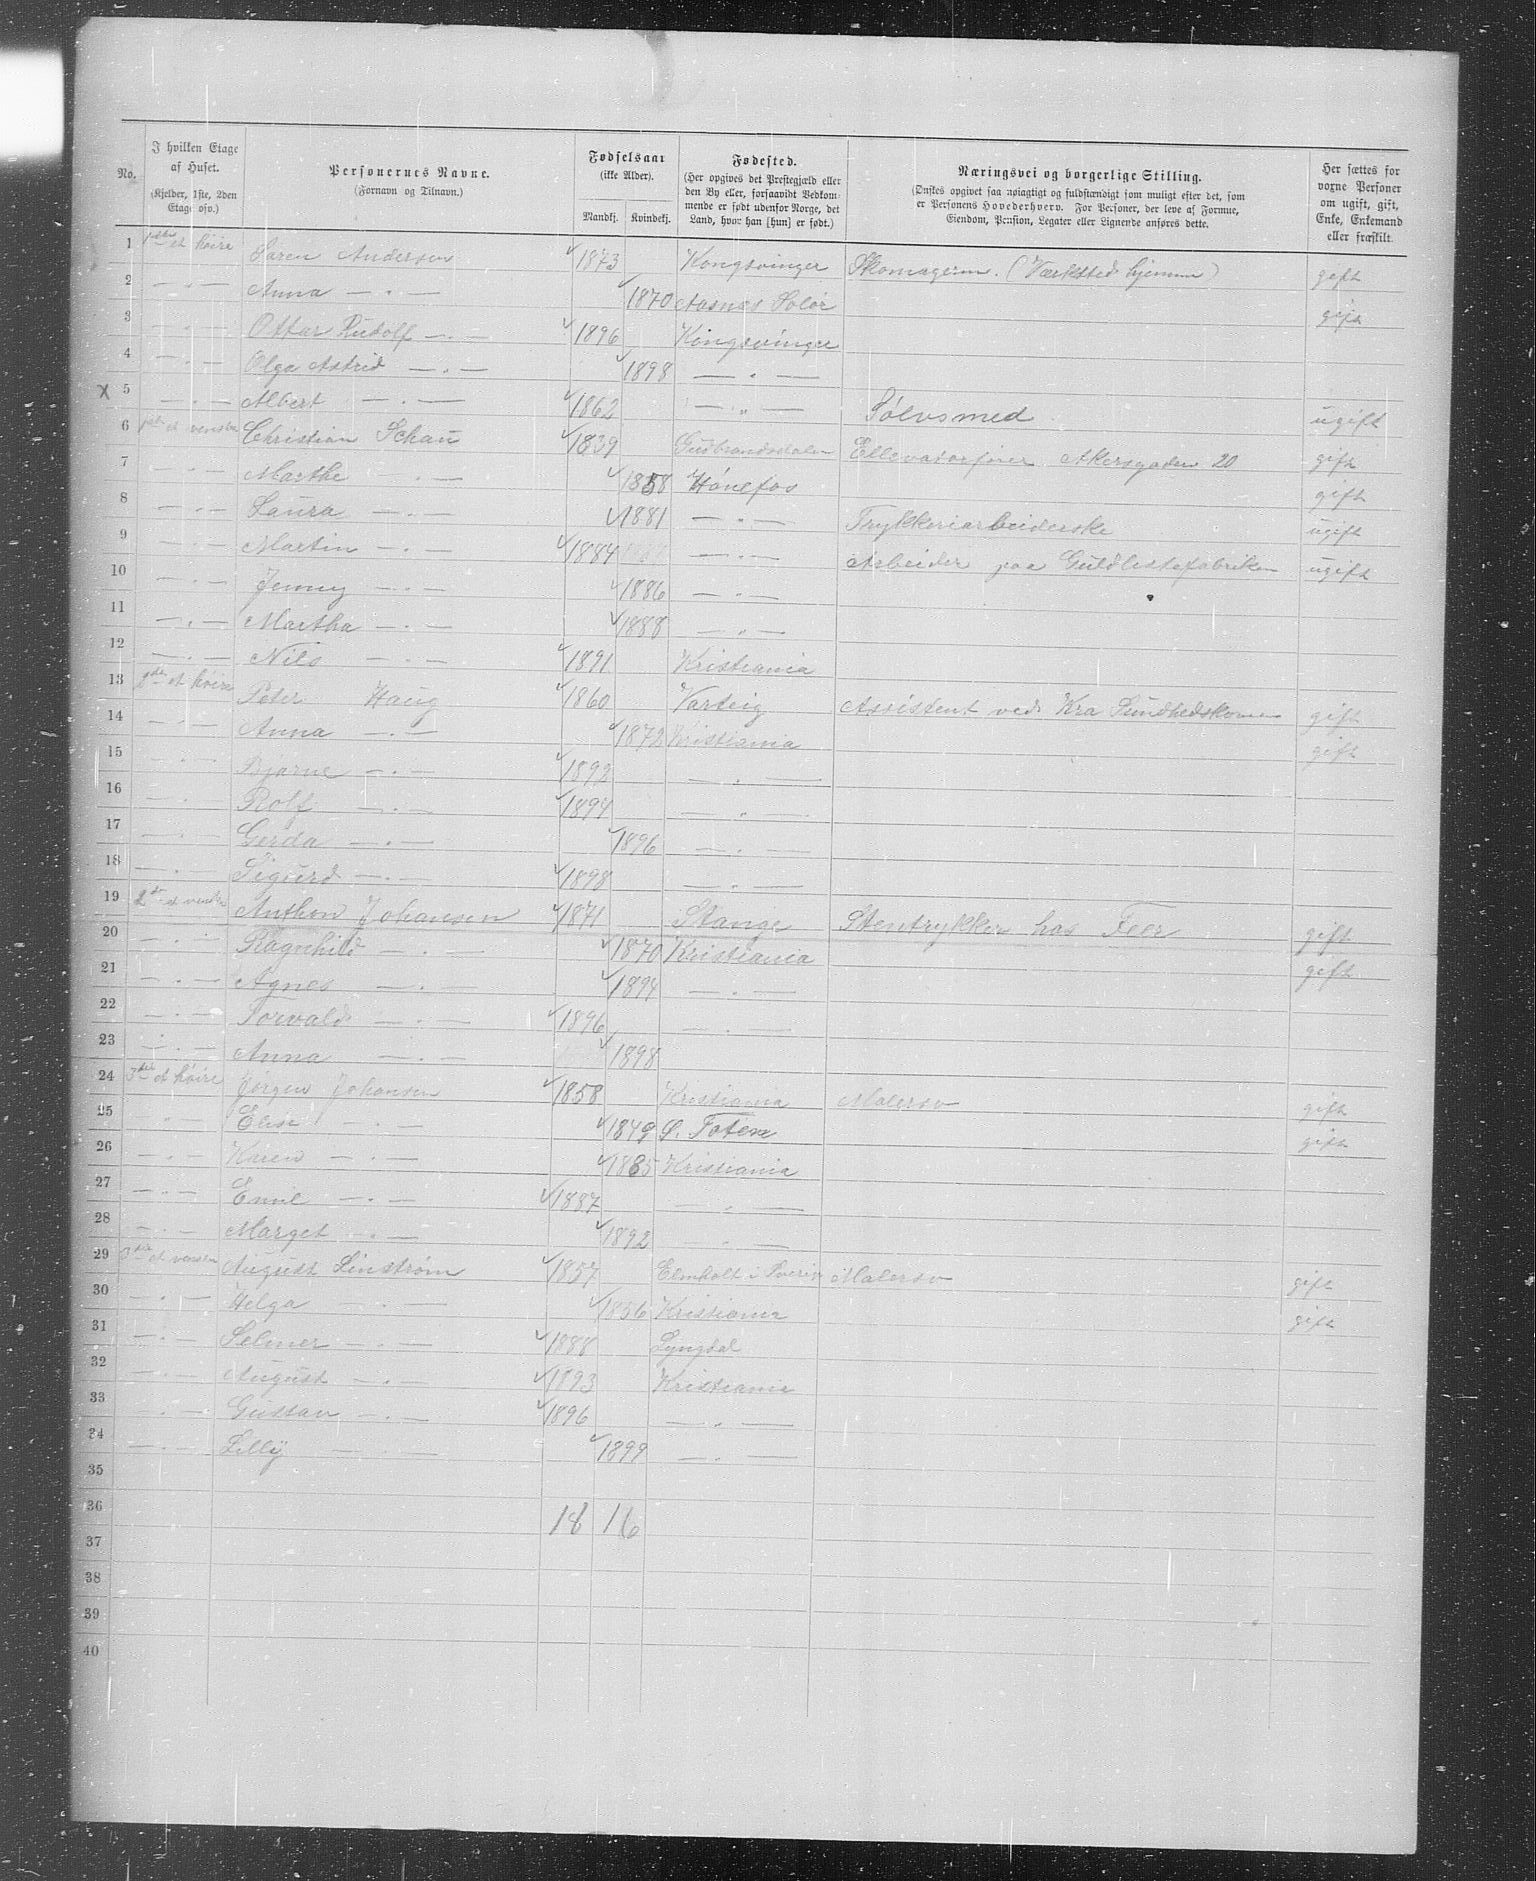 No. I hvilken Etage af Huset. (Kjelder, 1ste, 2den Etage osv.) Personernes Navne. (Fornavn og Tilnavn.) Fødselsaar (ikke Alder). Mandkj. Kvindekj. Fødested. (Her opgives det Prestegjæld eller den By eller, forsaavidt Vedkommende er født udenfor Norge, det Land, hvor han [hun] er født.) Næringsvei og borgerlige Stilling. (Ønskes opgivet saa nøiagtigt og fuldstændigt som muligt efter det, som er Personens Hovederhverv. For Personer, der leve af Formue, Eiendom, Pension, Legater eller Lignende anføres dette. Her sættes for voxne Personer om ugift, gift, Enke, Enkemand eller fraskilt.
1 1ste et høire Søren Andersen 1873 Kongsvinger Skomagerm. (Værksted hjemme) gift
2 — " — Anna — " — 1870 Aasnes Solør gift
3 — " — Ottar Rudolf — " — 1896 Kongsvinger
4 — " — Olga Astrid — " — 1898 — " —
X 5 — " — Albert — " — 1862 — " — Sølvsmed ugift
6 1ste et venstre Christian Schau 1839 Gudbrandsdalen Ellevatorfører Akersgaden 20 gift
7 — " — Marthe — " — 1858 Hønefos gift
8 — " — Laura — " — 1881 — " — Trykkeriarbeiderske ugift
9 — " — Martin — " — 1884 — " — Arbeider paa Guldlistefabriken ugift
10 — " — Jenny — " — 1886 — " —
11 — " — Martha — " — 1888 — " —
12 — " — Nils — " — 1891 Kristiania
13 2den et høire Peter Haug 1860 Varteig Assistent ved Kra Sundhedskom gift
14 — " — Anna — " — 1872 Kristiania gift
15 — " — Bjarne — " — 1892 — " —
16 — " — Rolf — " — 1894 — " —
17 — " — Gerda — " — 1896 — " —
18 — " — Sigurd — " — 1898 — " —
19 2de et venstre Anthon Johansen 1871 Stange Stentrykker hos Feer gift
20 — " — Ragnhild — " — 1870 Kristiania gift
21 — " — Agnes — " — 1894 — " —
22 — " — Torvald — " — 1896 — " —
23 — " — Anna — " — 1898
24 3die et høire Jørgen Johansen 1858 Kristiania Malersv gift
25 — " — Elise — " — 1849 Ø. Toten gift
26 — " — Karen — " — 1885 Kristiania
27 — " — Emil — " — 1887 — " —
28 — " — Marget — " — 1892 — " —
29 3die et venstre August Linstrøm 1857 Elmholt i Sverig Malersv gift
30 — " — Helga — " — 1856 Kristiania gift
31 — " — Selmer — " — 1888 Lyngdal
32 — " — August — " — 1893 Kristiania
33 — " — Gustav — " — 1896 — " —
34 — " — Lilly — " — 1899 — " —
35
36 18 16
37
38
39
40